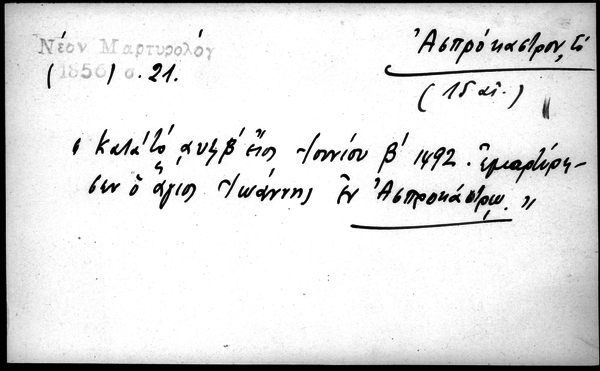 Νέον Μαρτυρολόγ
(1856) σ. 21.
Ἀσπρόκαστρον, τό
(15 αἰ.)
« κατὰ τὸ ͵αυϟβʹ ἔτος Ἰουνίου βʹ 1492. Ἐμαρτύρη-
σεν ὁ ἅγιος Ἰωάννης ἐν Ἀσπροκάστρῳ. »